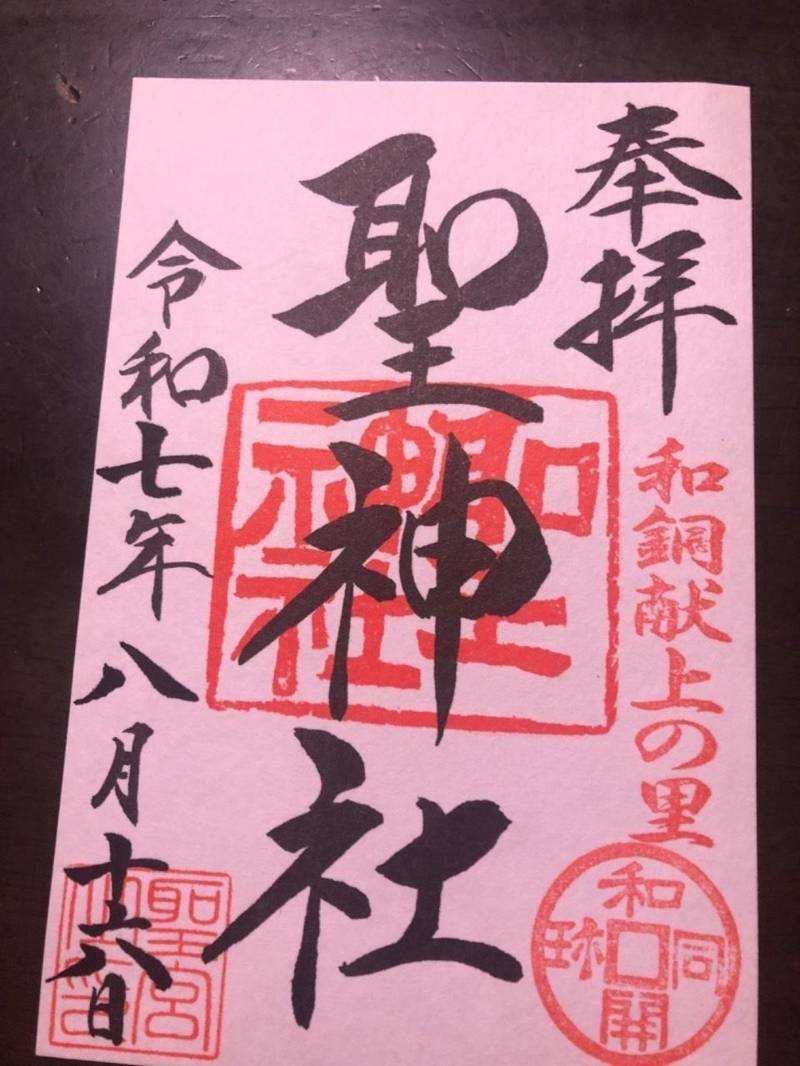 奉拝
和銅献上の里
和同開珎
聖神社
聖神社
令和七年八月十六日
聖宮